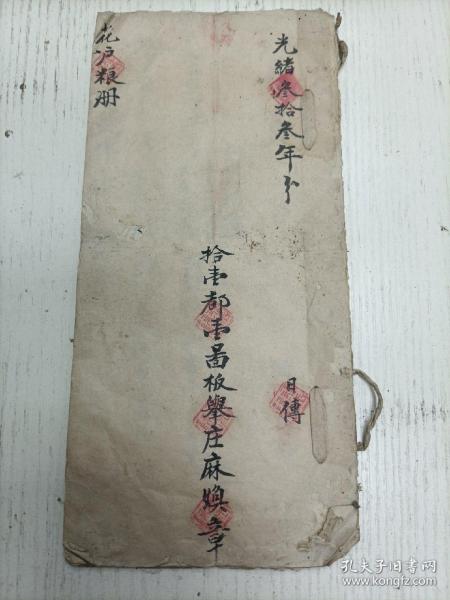 光緒叁拾叁年分
日傳
拾壹都壹啚板舉庄麻煥章
花户粮册
孔夫子旧书网
www.kongfz.com